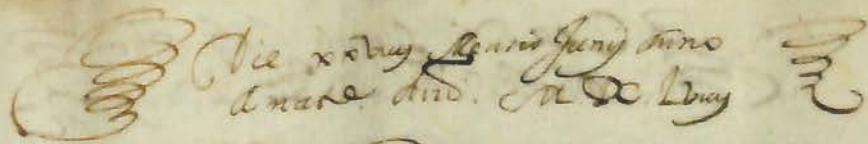 Die xxviij Mensis Junij Anno
A nat.e Dnd. M D Lviij